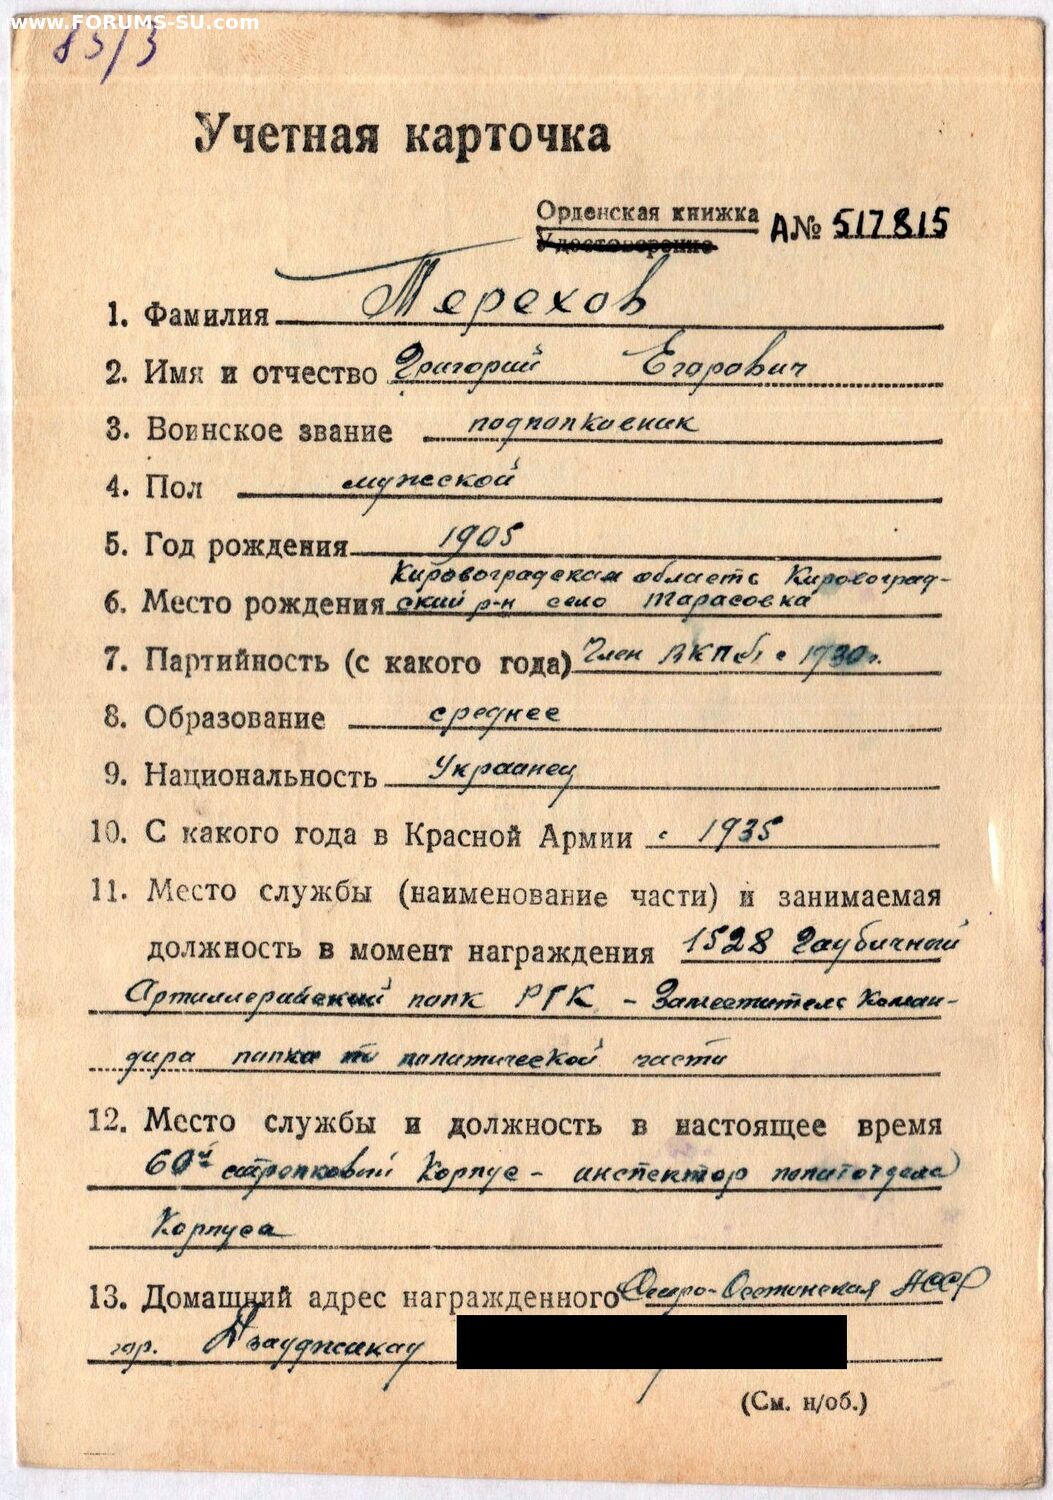 www.FORUMS-SU.com
83/3
Учетная карточка
Орденская книжка
Удостоверение А№ 517815
1. Фамилия Терехов
2. Имя и отчество Григорий Егорович
3. Воинское звание подполковник
4. Пол мужской
5. Год рождения 1905
Кировоградская область Кировоград-
6. Место рождения ский р-н село Тарасовка
7. Партийность (с какого года) Член ВКПб с 1930г.
8. Образование среднее
9. Национальность Украинец
10. С какого года в Красной Армии с 1935
11. Место службы (наименование части) и занимаемая
должность в момент награждения 1528 Гаубичный
Артиллерийский полк РГК – Заместитель Коман-
дира полка по политической части
12. Место службы и должность в настоящее время
60й стрелковый Корпус – инспектор политотдела
Корпуса
13. Домашний адрес награжденного Северо-Осетинская АССР
гор. Дзауджикау
(См. н/об.)